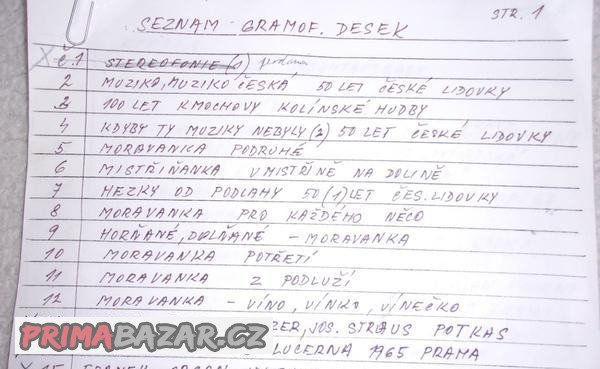 SEZNAM GRAMOF. DESEK STR. 1
X Č.1 STEREOFONIE (1) prodáno
2 MUZIKA, MUZIKO ČESKÁ 50 LET ČESKÉ LIDOVKY
3 100 LET KMOCHOVY KOLÍNSKÉ HUDBY
4 KDYBY TY MUZIKY NEBYLY (2) 50 LET ČESKÉ LIDOVKY
5 MORAVANKA PODRUHÉ
6 MISTŘIŇANKA V MISTŘÍNĚ NA DOLINĚ
7 HEZKY OD PODLAHY 50 (1) LET ČES. LIDOVKY
8 MORAVANKA PRO KAŽDÉHO NĚCO
9 HORŇANÉ, DOLŇANÉ - MORAVANKA
10 MORAVANKA POTŘETÍ
11 MORAVANKA Z PODLUŽÍ
12 MORAVANKA - VÍNO, VÍNKO, VÍNEČKO
ZER, JOS. STRAUS POTKAS
PRIMABAZAR.CZ
LUCERNA 1965 PRAMA
X 15